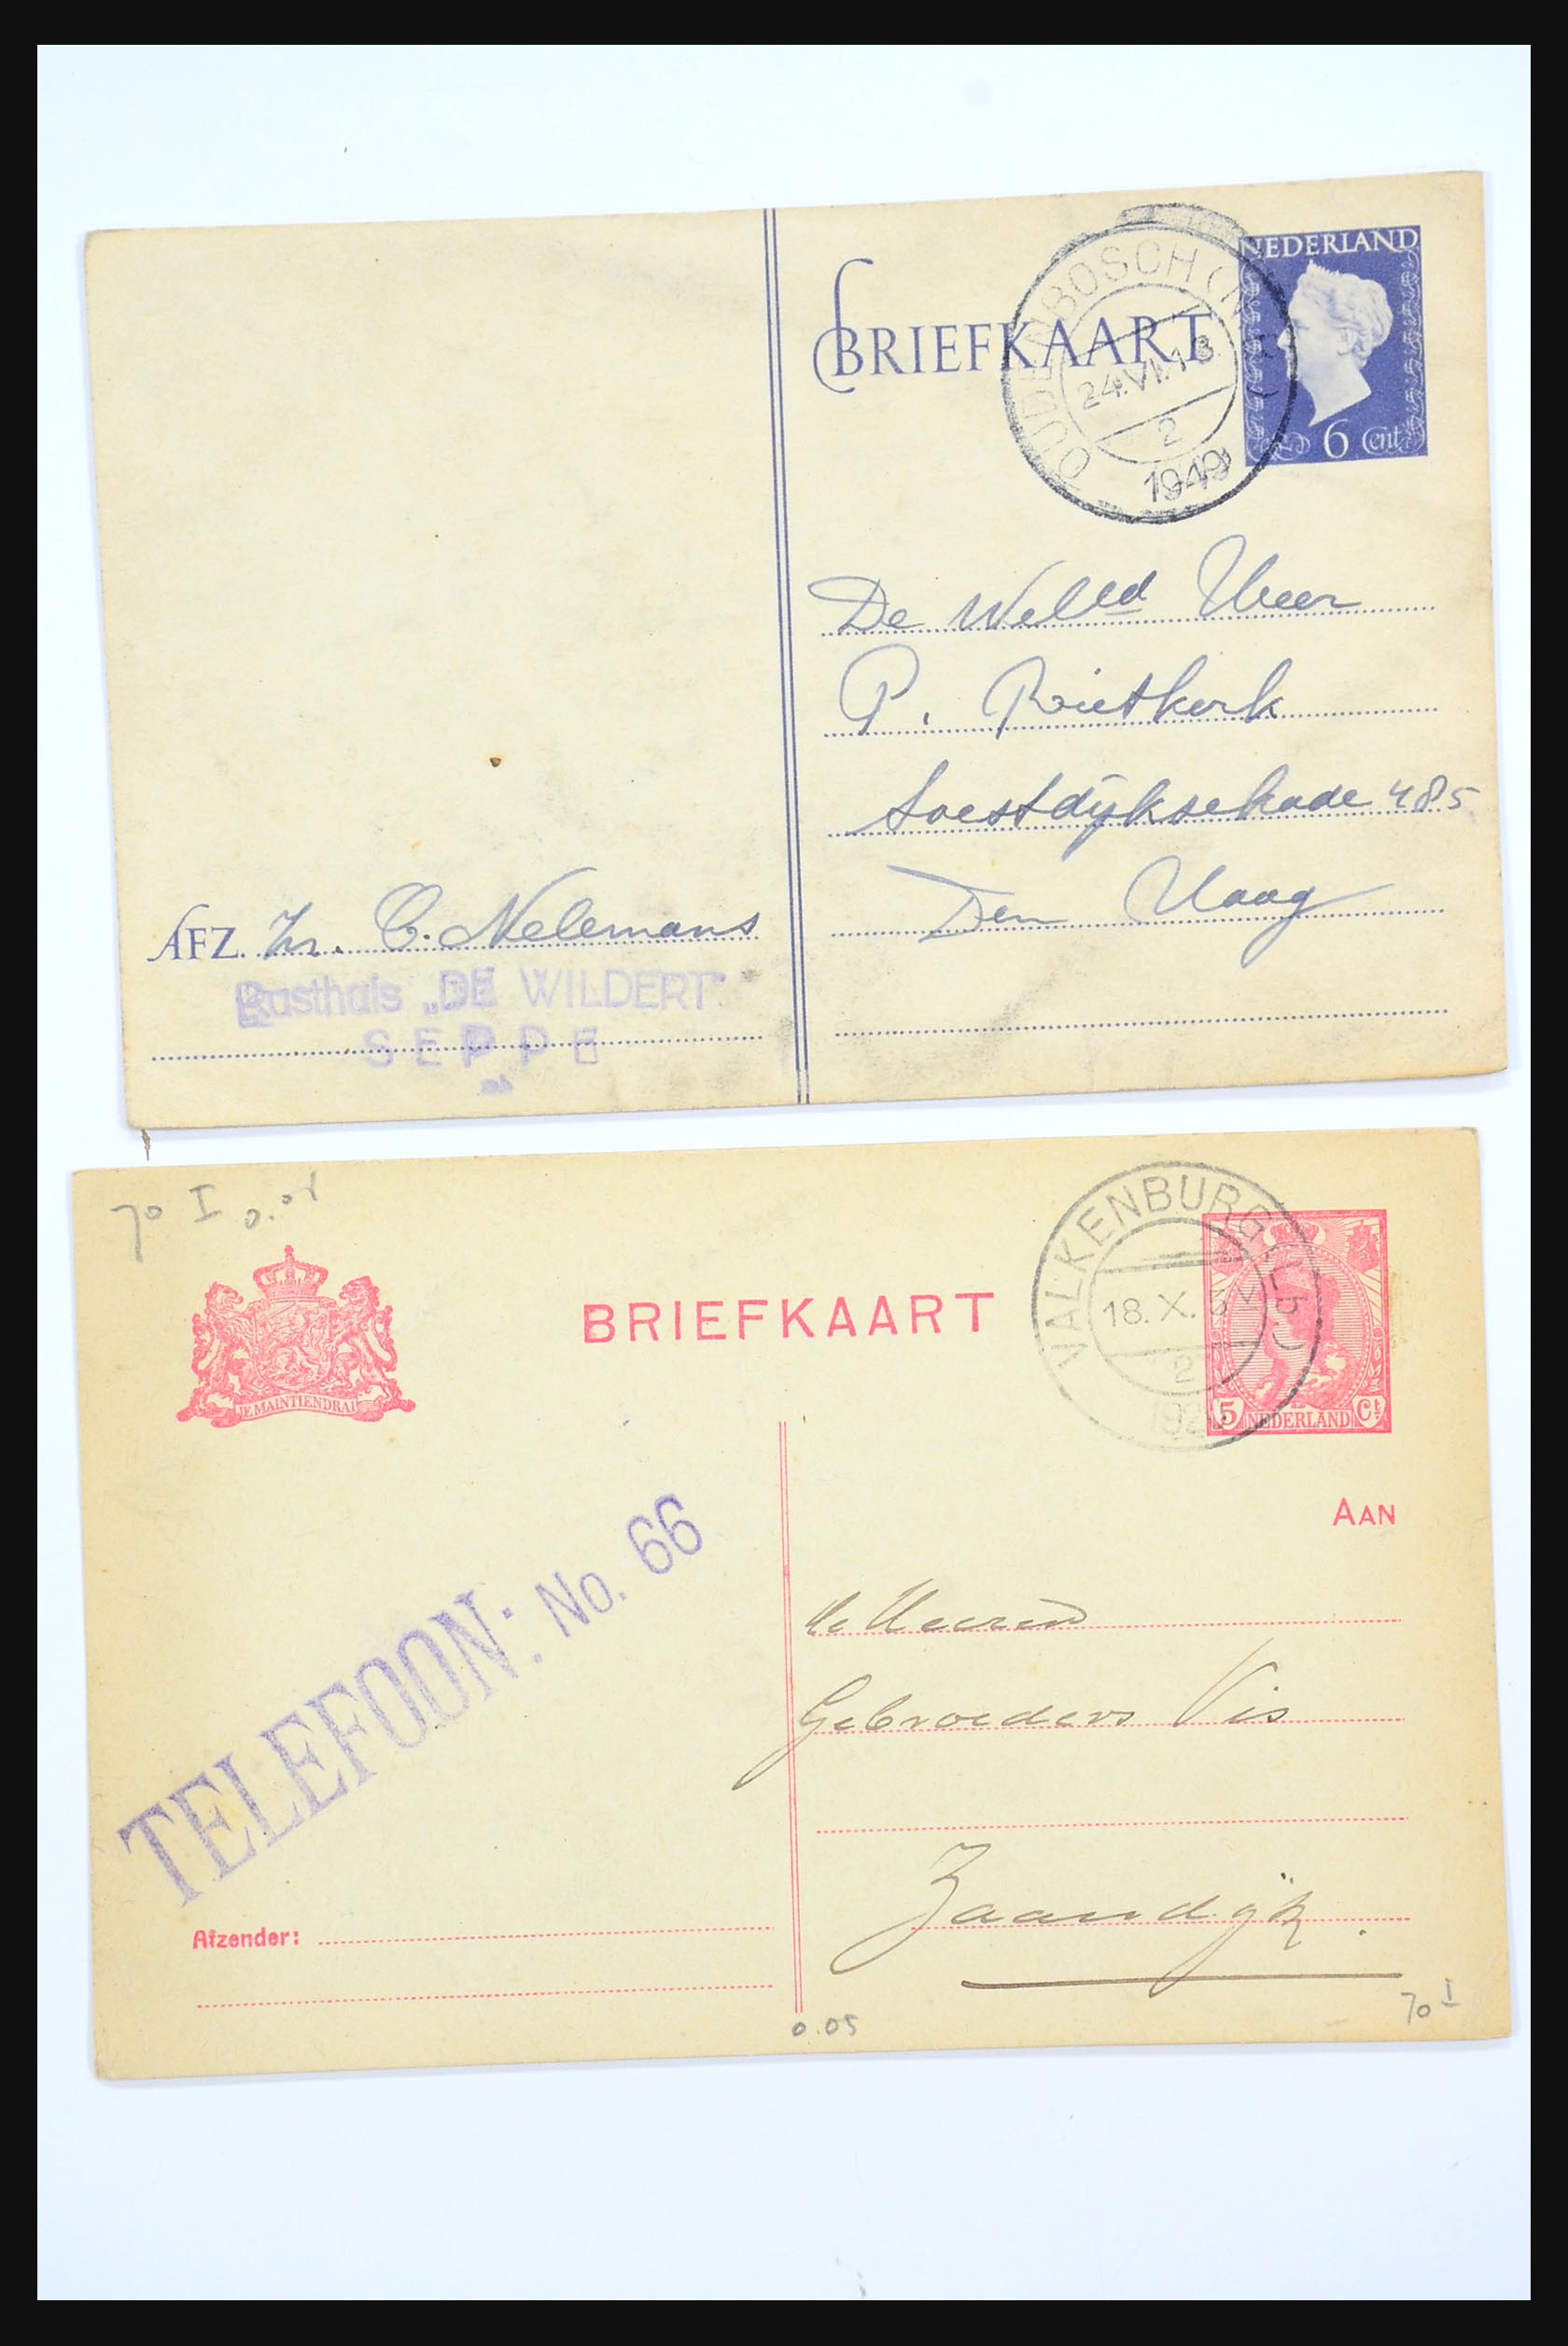 BRIEFKAART
NEDERLAND
6 Cent
OUDENBOSCH (N.B.)
24.VI.18
2
1949
De WelEd Heer
P. Rietkerk
Soestdijksekade 485
Den Haag
AFZ. Zr. C. Nelemans
Rusthuis „DE WILDERT"
SEPPE
70 I
JE MAINTIENDRAI
BRIEFKAART
VALKENBURG (Lb.)
18.X.
2
5 NEDERLAND Ct
AAN
TELEFOON: No. 66
de Heeren
Gebroeders Vis
Zaandijk.
Afzender:
0.05
70 I